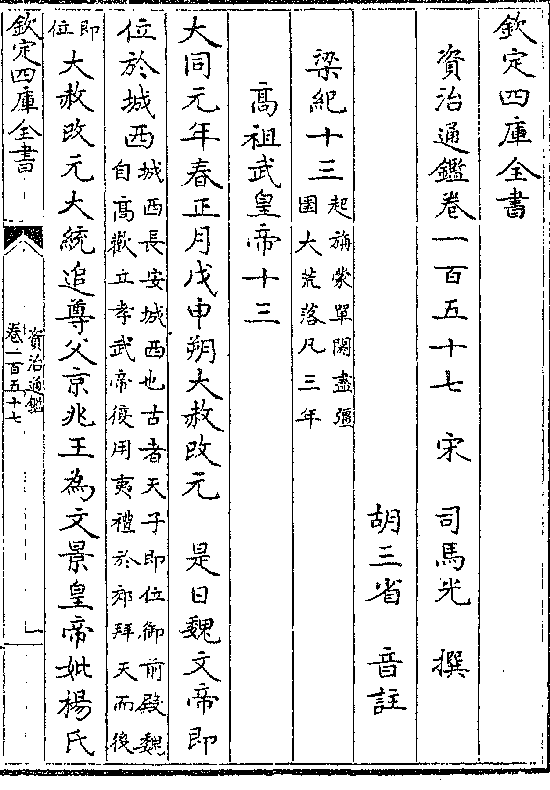 欽定四庫全書
資治通鑑卷一百五十七　宋　司馬光　撰
胡三省　音註
梁紀十三起旃蒙單閼盡彊圉大荒落凡三年
高祖武皇帝十三
大同元年春正月戊申朔大赦改元　是日魏文帝即
位於城西城西長安城西也古者天子即位御前殿魏自高歡立孝武帝復用夷禮於郊拜天而後
即位大赦改元大統追尊父京兆王為文景皇帝妣楊氏
欽定四庫全書
資治通鑑
卷一百五十七